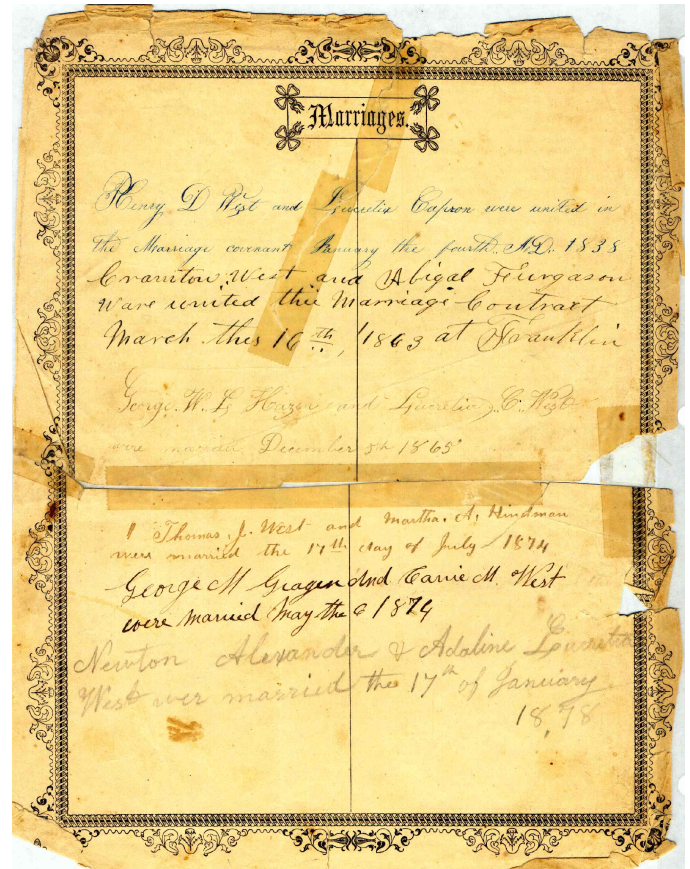 Marriages.
Henry D West and Lucretia Capron were united in
the Marriage covenant January the fourth A.D. 1838
Cranston West and Abigal Feurgason
ware united this Marriage Contract
March this 16th, 1863 at Franklin
George. W. L Hazen and Lucretia C. West
were married December 5th 1865
Thomas. J. West and Martha. A, Hindman
were married the 17th day of July 1874
George M Gragen and Carrie M. West
were Married May the 6 1874
Newton Alexander & Adaline Lucretia
West wer married the 17th of January
1878